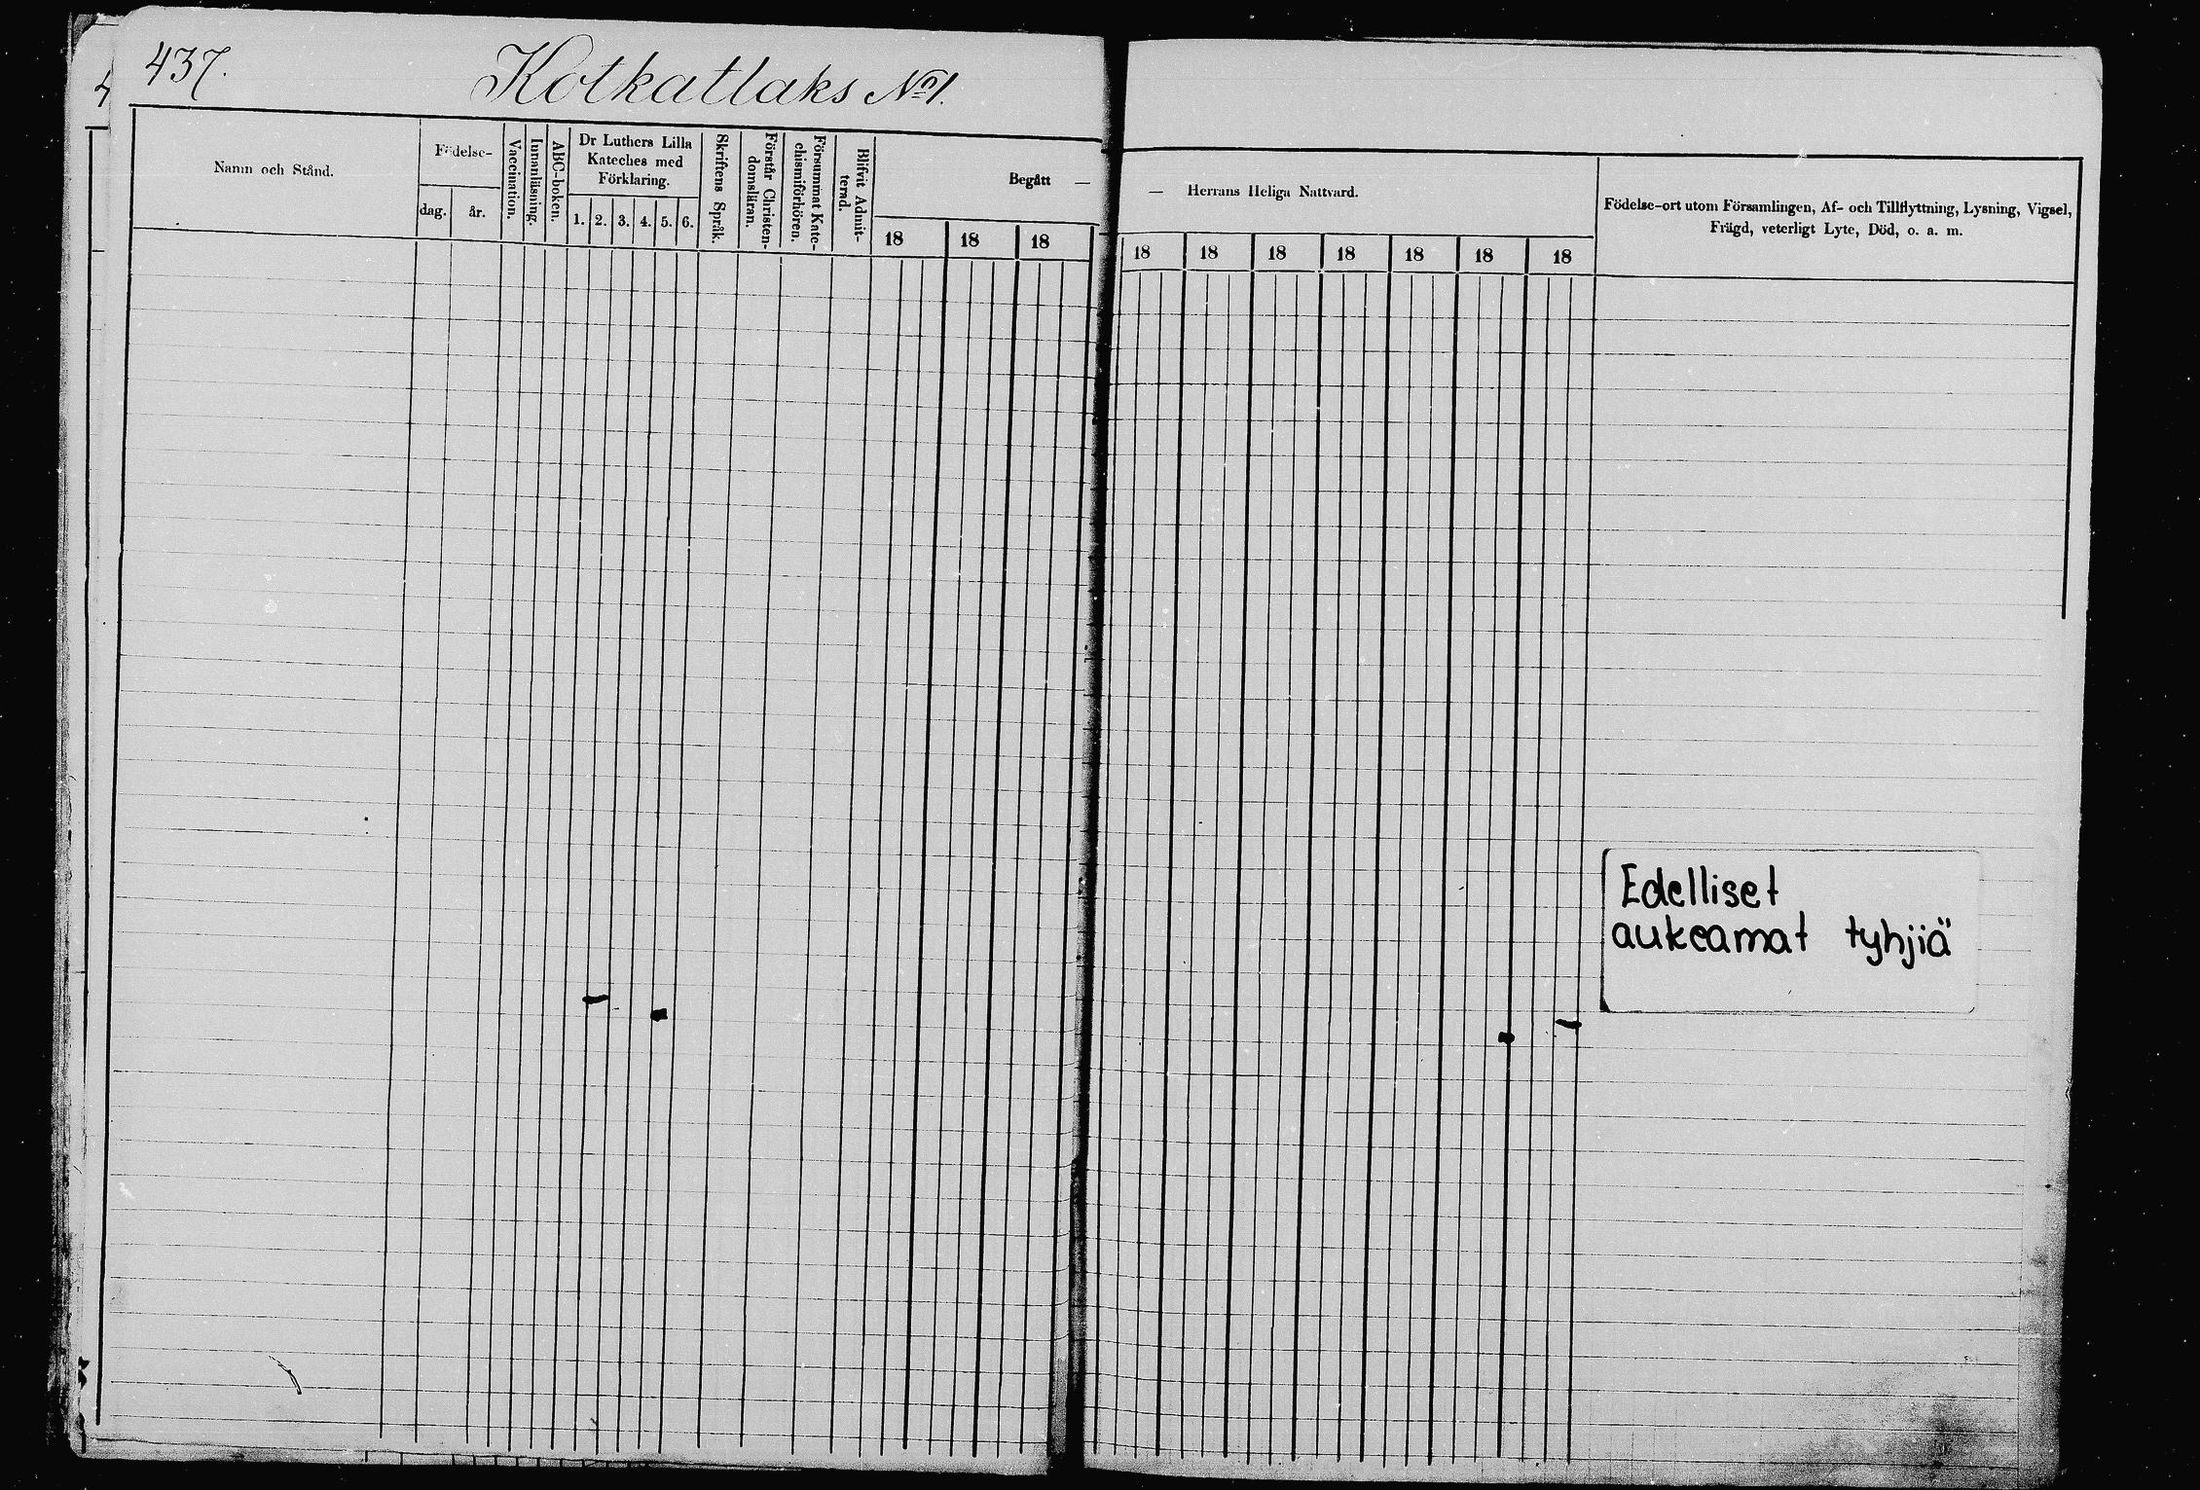 437.
Kotkatlaks No 1.
Namn och Stånd.
Födelse-
dag.
år.
Vaccination.
Innanläsning.
ABC-boken.
Dr Luthers Lilla
Kateches med
Förklaring.
1. 2. 3. 4. 5. 6.
Skriftens Språk.
Förstår Christen-
domsläran.
Försummat Kate-
chismiförhören.
Blifvit Admit-
terad.
Begått —
18 18 18
— Herrans Heliga Nattvard.
18 18 18 18 18 18 18
Födelse-ort utom Församlingen, Af- och Tillflyttning, Lysning, Vigsel,
Frägd, veterligt Lyte, Död, o. a. m.
Edelliset
aukeamat tyhjiä